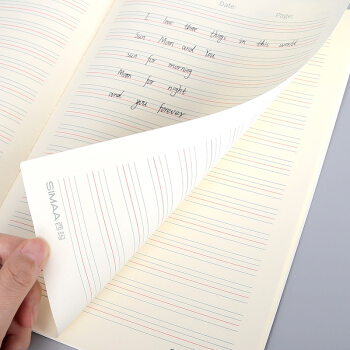 Date: Page:
I love three things in this world
Sun Moon and You
Sun for morning
Moon for night
and you forever
SIMAA西玛